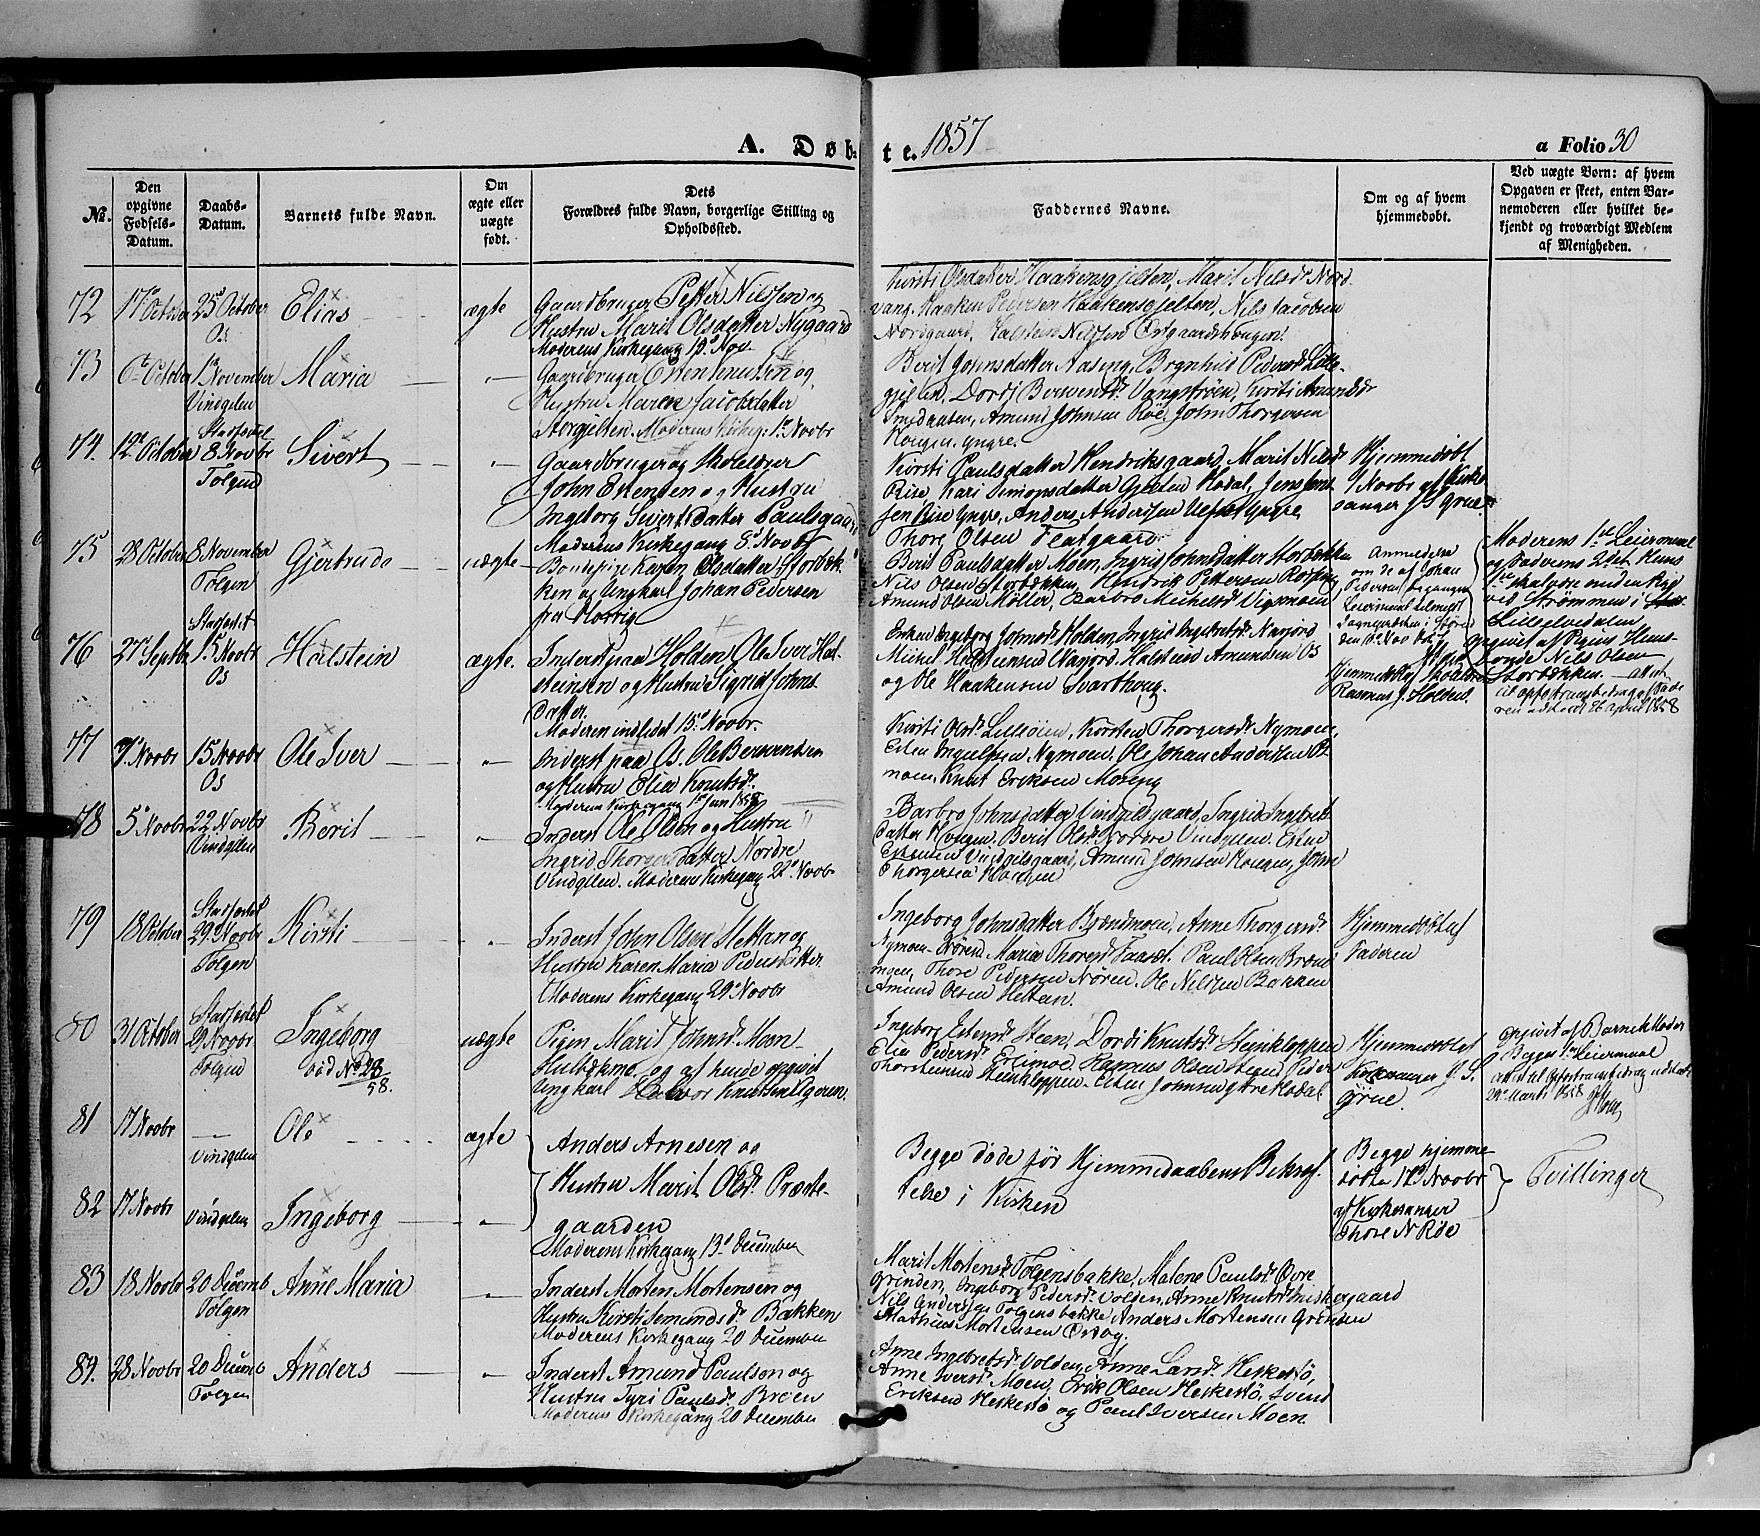 A. Døb-te. 1857
a Folio 30
No.
Den opgivne Fødsels-Datum.
Daabs-Datum.
Barnets fulde Navn.
Om ægte eller uægte født.
Dets Forældres fulde Navn, borgerlige Stilling og Opholdssted.
Faddernes Navne.
Om og af hvem hjemmedøbt.
Ved uægte Børn: af hvem Opgaven er skeet, enten Bar-nemoderen eller hvilket be-kjendt og troværdigt Medlem af Menigheden.
72
17 October
25 October
Os
Elias
ægte
Gaardbruger Petter Nilssen og
Hustru Marit Olsdatter Nygaard
Moderens Kirkegang Nov.
Kirsti Olsdatter Haakensgjelten, Marit Nilsd. Nord
vang, Haaken Pedersen Haakensgjelten, Nils Jacobsen
Nordgaard, Halstein Nilssen Østgaardshaugen.
73
6 October
1 November
Vindgelen
Maria
"
Gaardbruger Esten Knutsen og
Hustru Maren Jacobsdatter
Storgjelten. Moderens Kirkeg: 1 Novbr
Berit Johnsdatter Aaseng, Brynhild Pedersd. Lille-
gjelten, Dordi Bersvendsd. Vangstrøen, Kirsti Amunds
Amund Johnsen Røe, John Thorgersen
Haugen yngre.
74.
12 October
Stadfæstet
8 Novbr
Tolgen
Sivert
"
Gaardbruger og Skolelærer
John Estensen og Hustru
Ingeborg Sivertsdatter Paulsgaard
Moderens Kirkegang 8 Novbr
Kirsti Paulsdatter Hendriksgaard, Marit Nilsd
Riise, Kari Simonsdatter Gjelten Hodal, Jens Jens
sen Riise Yngre, Anders Andersen Yngre
Thore Olsen Flatgaard
Hjemmedøbt
1 Novbr af Kirke
sanger J. S. Grue
75
28 October
8 November
Tolgen
Gjertrude
uægte
Bondepige Karen Olsdatter Storbæk
ken og Ungkarl Johan Pedersen
fra
Berit Paulsdatter Moen, Ingrid Johnsdatter Storbækken
Nils Olsen Storbækken, Hendrik Pettersen
Amund Olsen Möller, Barbro Michelsd. Vigemoen
Anmeldelse
om de af Johan
Pedersen begangne
Leiermaal tilmeldt
Moderens 1ste Leiermaal
og Faderens 2det. Hans
skal være
ved Strømmen i
Lilleelvedalen
opgivet af Pigens Huus-
bonde Nils Olsen
Storbækken.
April 1858
76
27 Septbr
Stadfæstet
15 Novbr
Os
Halstein
ægte.
Inderst paa Holden, Ole Iver Hal-
steinsen og Hustru Sigrid Johns-
datter.
Moderen indledet 15 Novbr.
Enken Ingeborg Johnsd. Holden, Ingrid Ingebretsd. Narjord
Michel Halsteinsen Narjord, Halstein Amundsen Os
og Ole Haakensen Svarthaug.
Hjemmedøbt af Skolelærer
Rasmus J. Holden.
77
7 Novbr
15 Novbr
Os
Ole Iver
"
Inderst paa Os. Ole Bersvendsen
og Hustru Elie Knutsd.
Moderens Kirkegang 1 Jan 1858
Kirsti Olsd. Lilleøien, Kirsten Thorgersd. Nymoen,
Esten Ingulfsen Nymoen, Ole Johan Andersen Os
moen, Knut Eriksen Moseng
78
5 Novbr
22 Novbr
Vindgelen
Berit
"
Inderst Ole Olsen og Hustru
Ingrid Thorgersdatter Nordre
Vindgelen. Moderens Kirkegang 22 Novbr
Barbro Johnsdatter Vindgilsgaard, Ingrid Ingebret
datter Haugen, Berit Olsd. Nordre Vindgelen, Esten
Estensen Vindgilsgaard, Amund Johnsen Haugen, John
Thorgersen Haugen
79
18 October
Stadfæstet
29 Novbr
Tolgen
Kirsti
"
Inderst John Olsen Hettan og
Hustru Karen Maria Pedersdatter.
Moderens Kirkegang 29 Novbr
Ingeborg Johnsdatter Brændmoen, Anne Thorgersd.
Nymoen Maria Thoresd. Faaset, Paul Olsen
Thore Pedersen Nøren, Ole Nilssen Bakken
Amund Olsen Hettan.
Hjemmedøbt af
Faderen
80
31 October
Stadfæstet
29 Novbr
Tolgen
Ingeborg
vid No. 28
58.
uægte
Pigen Marit Johnsd. Moen
og af hende opgivet
Ungkarl Halvor Knutsen
Ingeborg Estensd. Steen, Dordi Knutsd. Steinkloppen
Elie Pedersd. Erlimoe, Rasmus Olsen Steen, Peder
Thorsteinsen Steinkloppen, Esten Johnsen Hodal
Hjemmedøbt af
Kirkesanger J. S.
Grue.
Opgivet af Barnets Moder
Begges 1ste Leiermaal
Marts 1858
81
17 Novbr
Vindgelen
Ole
ægte
Anders Arnesen og
Hustru Marit Olsd. Præste-
gaarden
Moderens Kirkegang 13 December
Begge døde før Hjemmedaabens Bekræf-
telse i Kirken
Begge hjemme
døbte 17 Novbr
af Kirkesanger
Thore N. Röe
Tvillinger
82
17 Novbr
Vindgelen
Ingeborg
"
83
18 Novbr
20 Decemb
Tolgen
Anne Maria
"
Inderst Morten Mortensen og
Hustru Kirsti Simensd. Bakken
Moderens Kirkegang 20 December
Marit Mortensd. Tolgensbakke, Malene Paulsd. Øvre
Grinden, Ingeborg Pedersd. Volden, Anne Knutsd.
Nils Anderssen Tolgensbakke Anders Mortensen Grinden
Mathias Mortensen
84.
28 Novbr
20 Decemb
Tolgen
Anders
"
Inderst Amund Paulsen og
Hustru Siri Paulsd. Brøen
Moderens Kirkegang 20 December
Anne Ingebretsd. Volden, Anne Larsd. Heskestö,
Anne Iversd. Moen, Erik Olsen Heskestö, Svend
Eriksen Heskestö og Paul Iversen Moen